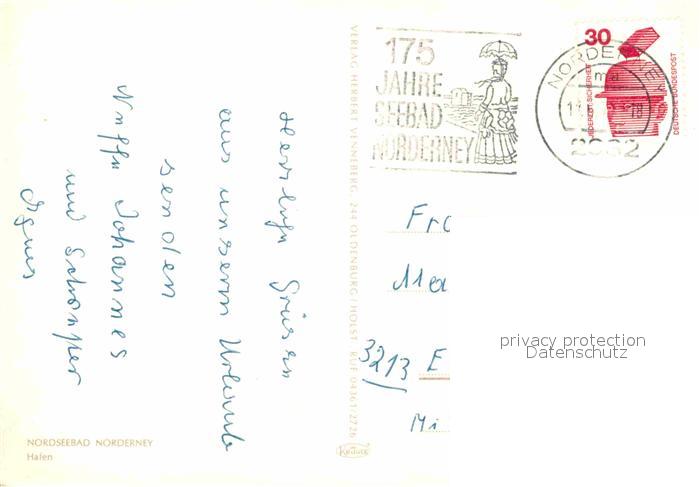 175
JAHRE
SEEBAD
NORDERNEY
NORDERNEY
mc
2982
30
JEDERZEIT SICHERHEIT
DEUTSCHE BUNDESPOST
VERLAG HERBERT VENNEBERG, 244 OLDENBURG/HOLST · RUF 04361/2726
Herrliche Grüsse
aus unserm Urlaub
senden
Neffe Johannes
und
Agnes
Fr
Ma
3213 E
Mi
privacy protection
Datenschutz
Krüger
NORDSEEBAD NORDERNEY
Hafen